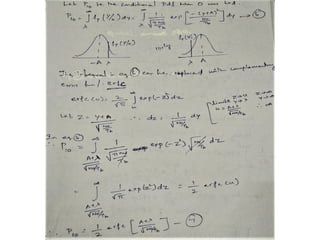 Let P₁₀ be the conditional Pdf when 0 was sent
P₁₀ = ∫_λ^∞ f_y(y/0) dy = ∫_λ^∞ 1/√(πN₀/T_b) exp[-(y+A)²/(N₀/T_b)] dy → ⑥
f_y(y/0) f_y(y/1)
-A λ λ A
The integral in eq ⑥ can be replaced with complementary
error fun / erfc
erfc(u) = 2/√π ∫_u^∞ exp(-z²) dz
Let Z = (y+A)/√(N₀/T_b) ∴ dz = 1/√(N₀/T_b) dy
y→λ
y→∞
In eq ⑥
∴ P₁₀ = ∫ 1/√(πN₀/T_b) exp(-z²) √(N₀/T_b) dz
(A+λ)/√(N₀/T_b)
= ∫^∞ 1/√π exp(z²) dz = 1/2 erfc(u)
(A+λ)/√(N₀/T_b)
∴ P₁₀ = 1/2 erfc[(A+λ)/√(N₀/T_b)] — ⑦